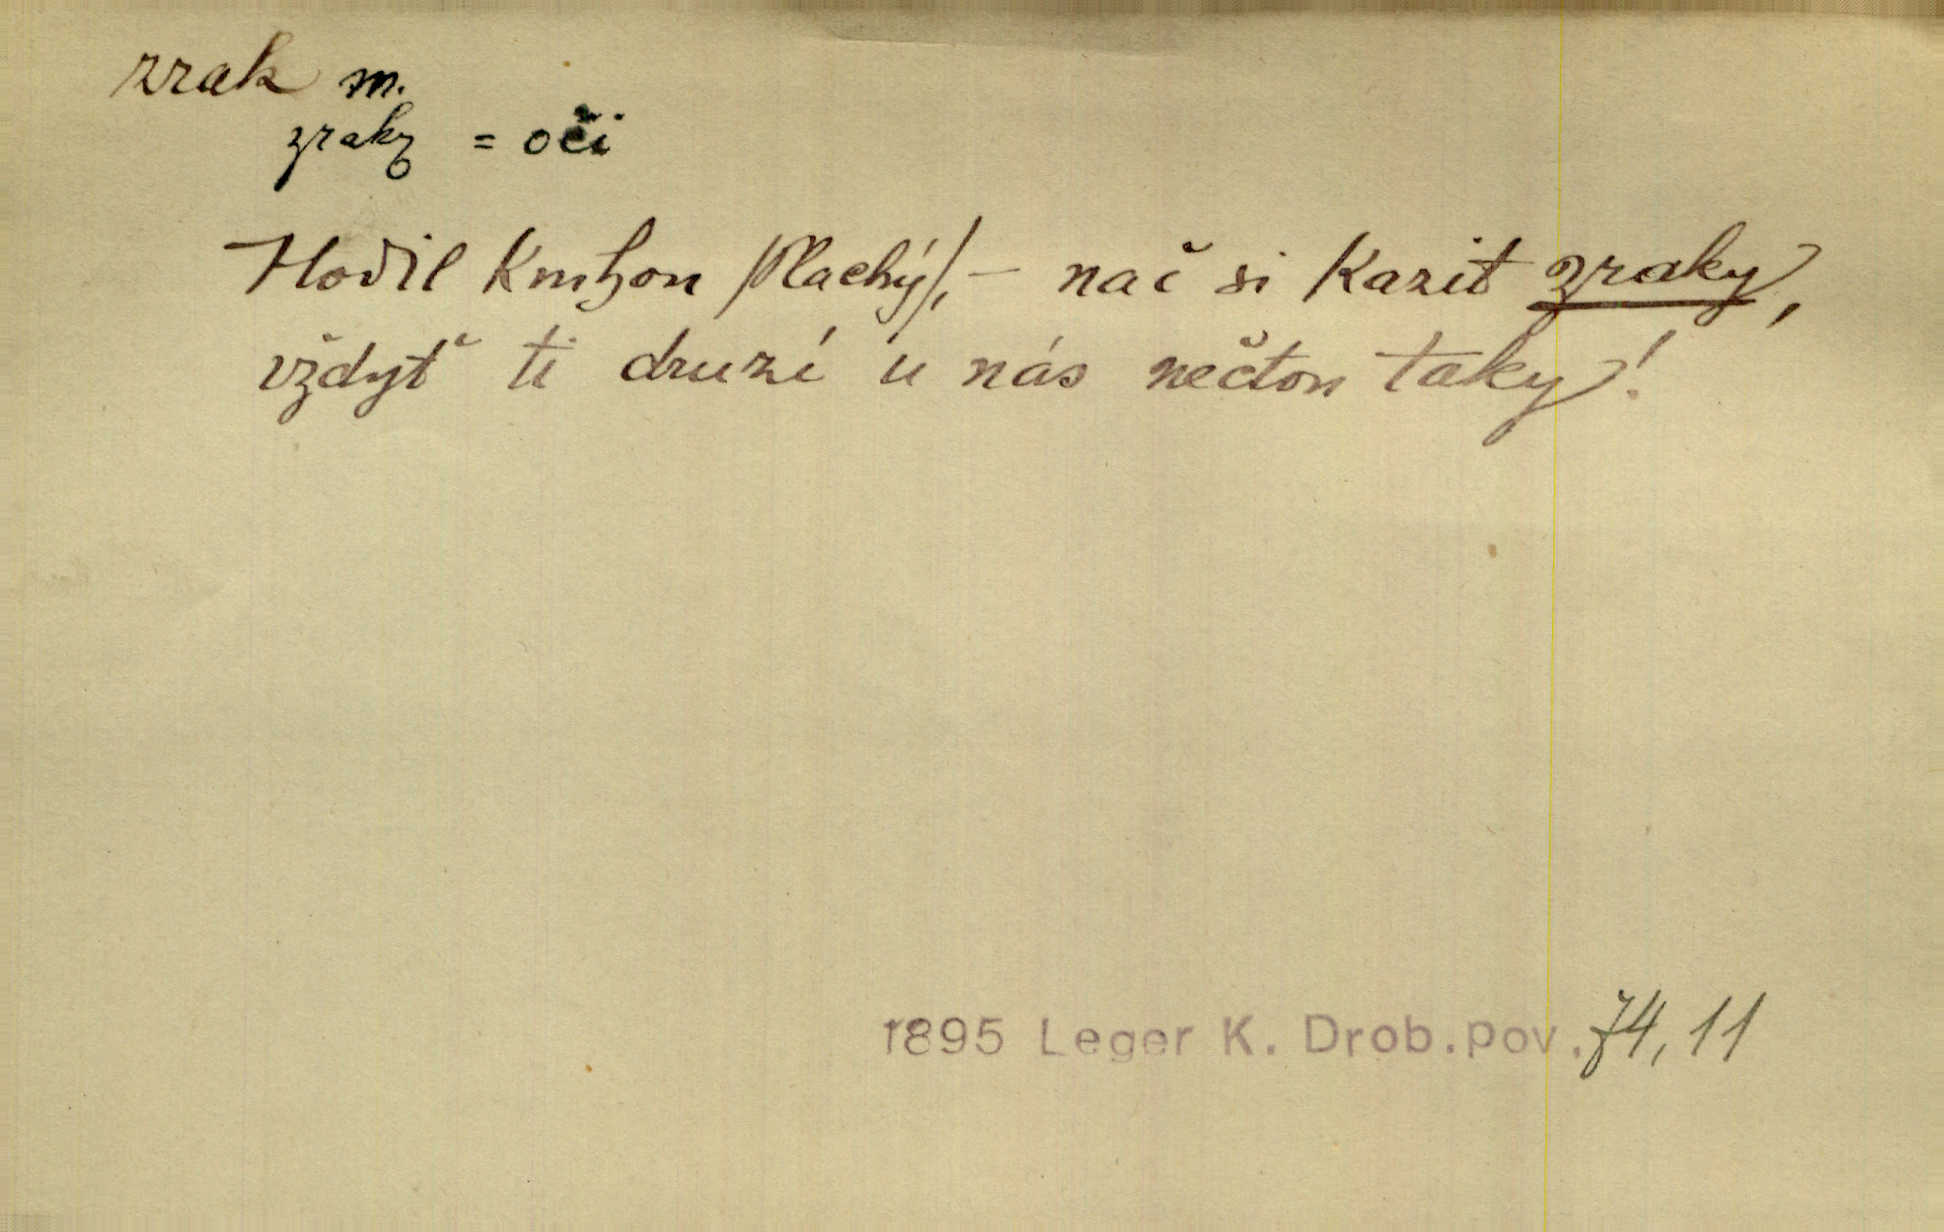 zrak m.
zraky = oči
Hodil knihou /Plachý/, – nač si kazit zraky,
vždyť ti druzí u nás nečtou taky!
1895 Leger K. Drob.pov. 74, 11